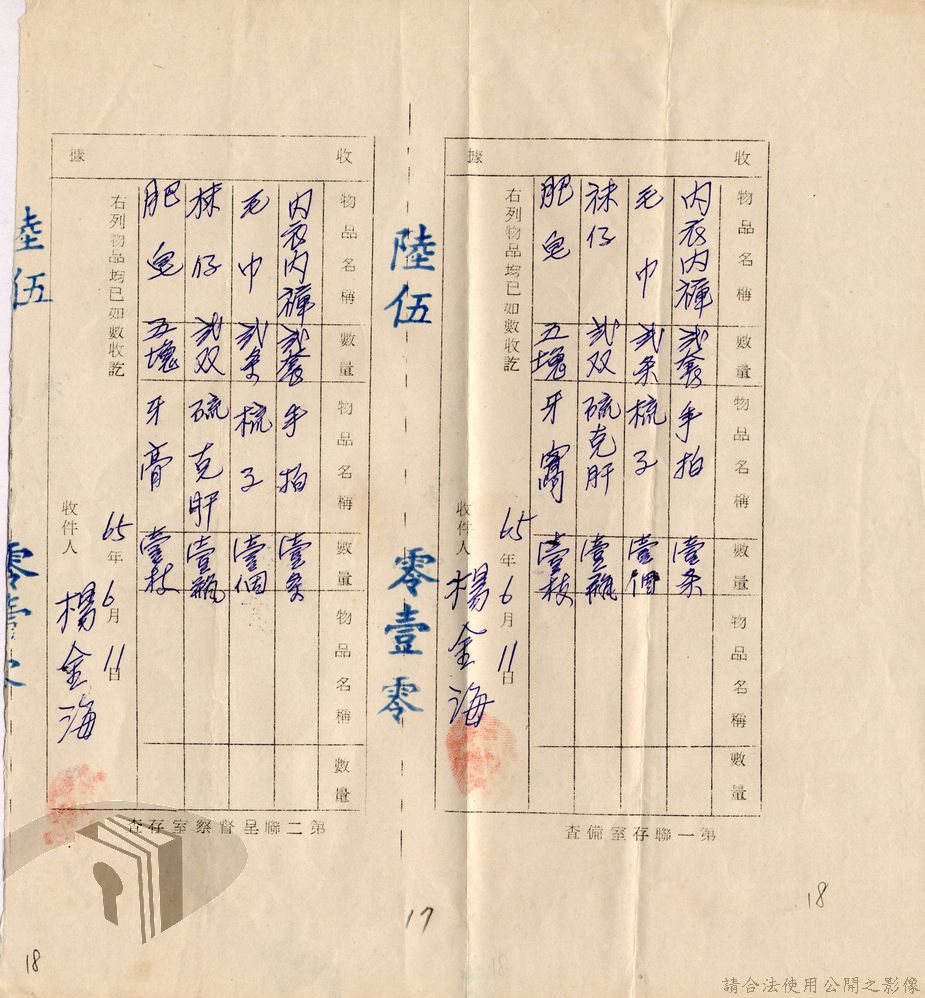 收據
物品名稱
數量
物品名稱
數量
物品名稱
數量
內衣內褲
貳套
手拍
壹条
毛巾
貳条
梳子
壹個
袜仔
貳双
硫克肝
壹瓶
肥皂
五塊
牙膏
壹枝
右列物品均已如數收訖
65年6月11日
收件人
楊金海
第一聯存室備查
陸伍
零壹零
收據
物品名稱
數量
物品名稱
數量
物品名稱
數量
內衣內褲
貳套
手拍
壹条
毛巾
貳条
梳子
壹個
袜仔
貳双
硫克肝
壹瓶
肥皂
五塊
牙膏
壹枝
右列物品均已如數收訖
65年6月11日
收件人
楊金海
第二聯呈督察室存查
陸伍
零壹零
18
17
18
請合法使用公開之影像